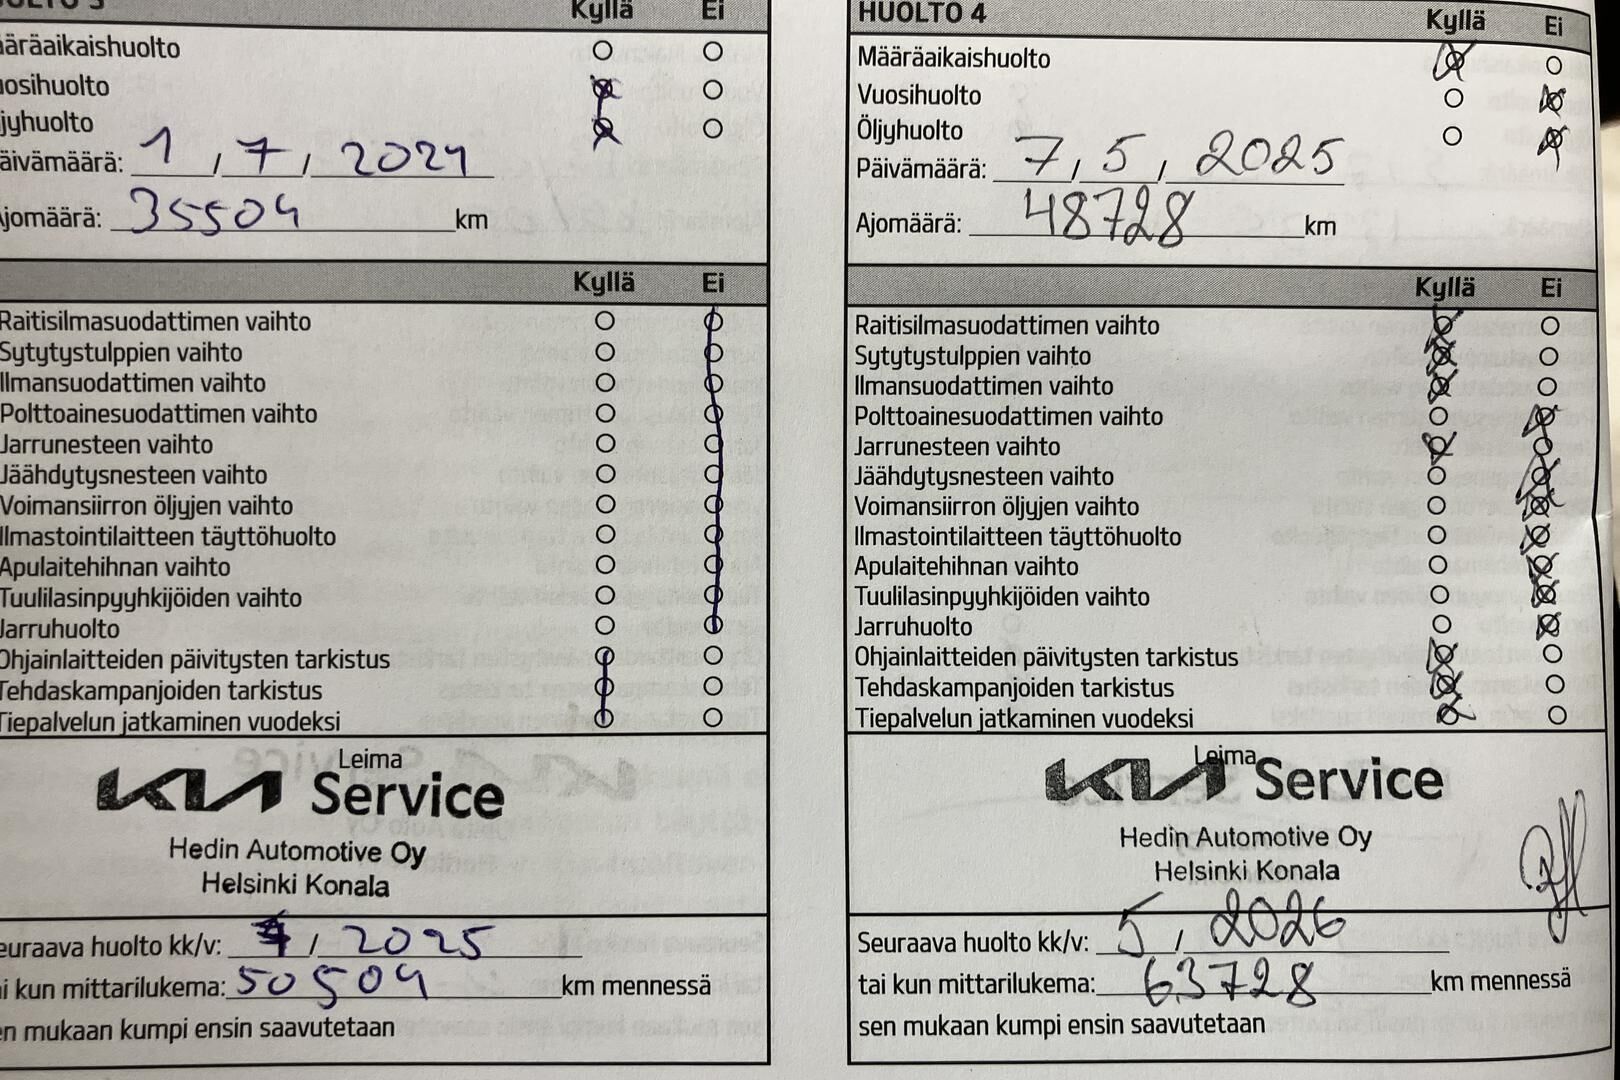 Kyllä Ei
Määräaikaishuolto
Vuosihuolto
Öljyhuolto
Päivämäärä: 1 / 7 / 2024
Ajomäärä: 35504 km
Kyllä Ei
Raitisilmasuodattimen vaihto
Sytytystulppien vaihto
Ilmansuodattimen vaihto
Polttoainesuodattimen vaihto
Jarrunesteen vaihto
Jäähdytysnesteen vaihto
Voimansiirron öljyjen vaihto
Ilmastointilaitteen täyttöhuolto
Apulaitehihnan vaihto
Tuulilasinpyyhkijöiden vaihto
Jarruhuolto
Ohjainlaitteiden päivitysten tarkistus
Tehdaskampanjoiden tarkistus
Tiepalvelun jatkaminen vuodeksi
Leima
KIA Service
Hedin Automotive Oy
Helsinki Konala
Seuraava huolto kk/v: 7 / 2025
tai kun mittarilukema: 50504 km mennessä
sen mukaan kumpi ensin saavutetaan
HUOLTO 4 Kyllä Ei
Määräaikaishuolto
Vuosihuolto
Öljyhuolto
Päivämäärä: 7 / 5 / 2025
Ajomäärä: 48728 km
Kyllä Ei
Raitisilmasuodattimen vaihto
Sytytystulppien vaihto
Ilmansuodattimen vaihto
Polttoainesuodattimen vaihto
Jarrunesteen vaihto
Jäähdytysnesteen vaihto
Voimansiirron öljyjen vaihto
Ilmastointilaitteen täyttöhuolto
Apulaitehihnan vaihto
Tuulilasinpyyhkijöiden vaihto
Jarruhuolto
Ohjainlaitteiden päivitysten tarkistus
Tehdaskampanjoiden tarkistus
Tiepalvelun jatkaminen vuodeksi
Leima
KIA Service
Hedin Automotive Oy
Helsinki Konala
Seuraava huolto kk/v: 5 / 2026
tai kun mittarilukema: 63728 km mennessä
sen mukaan kumpi ensin saavutetaan